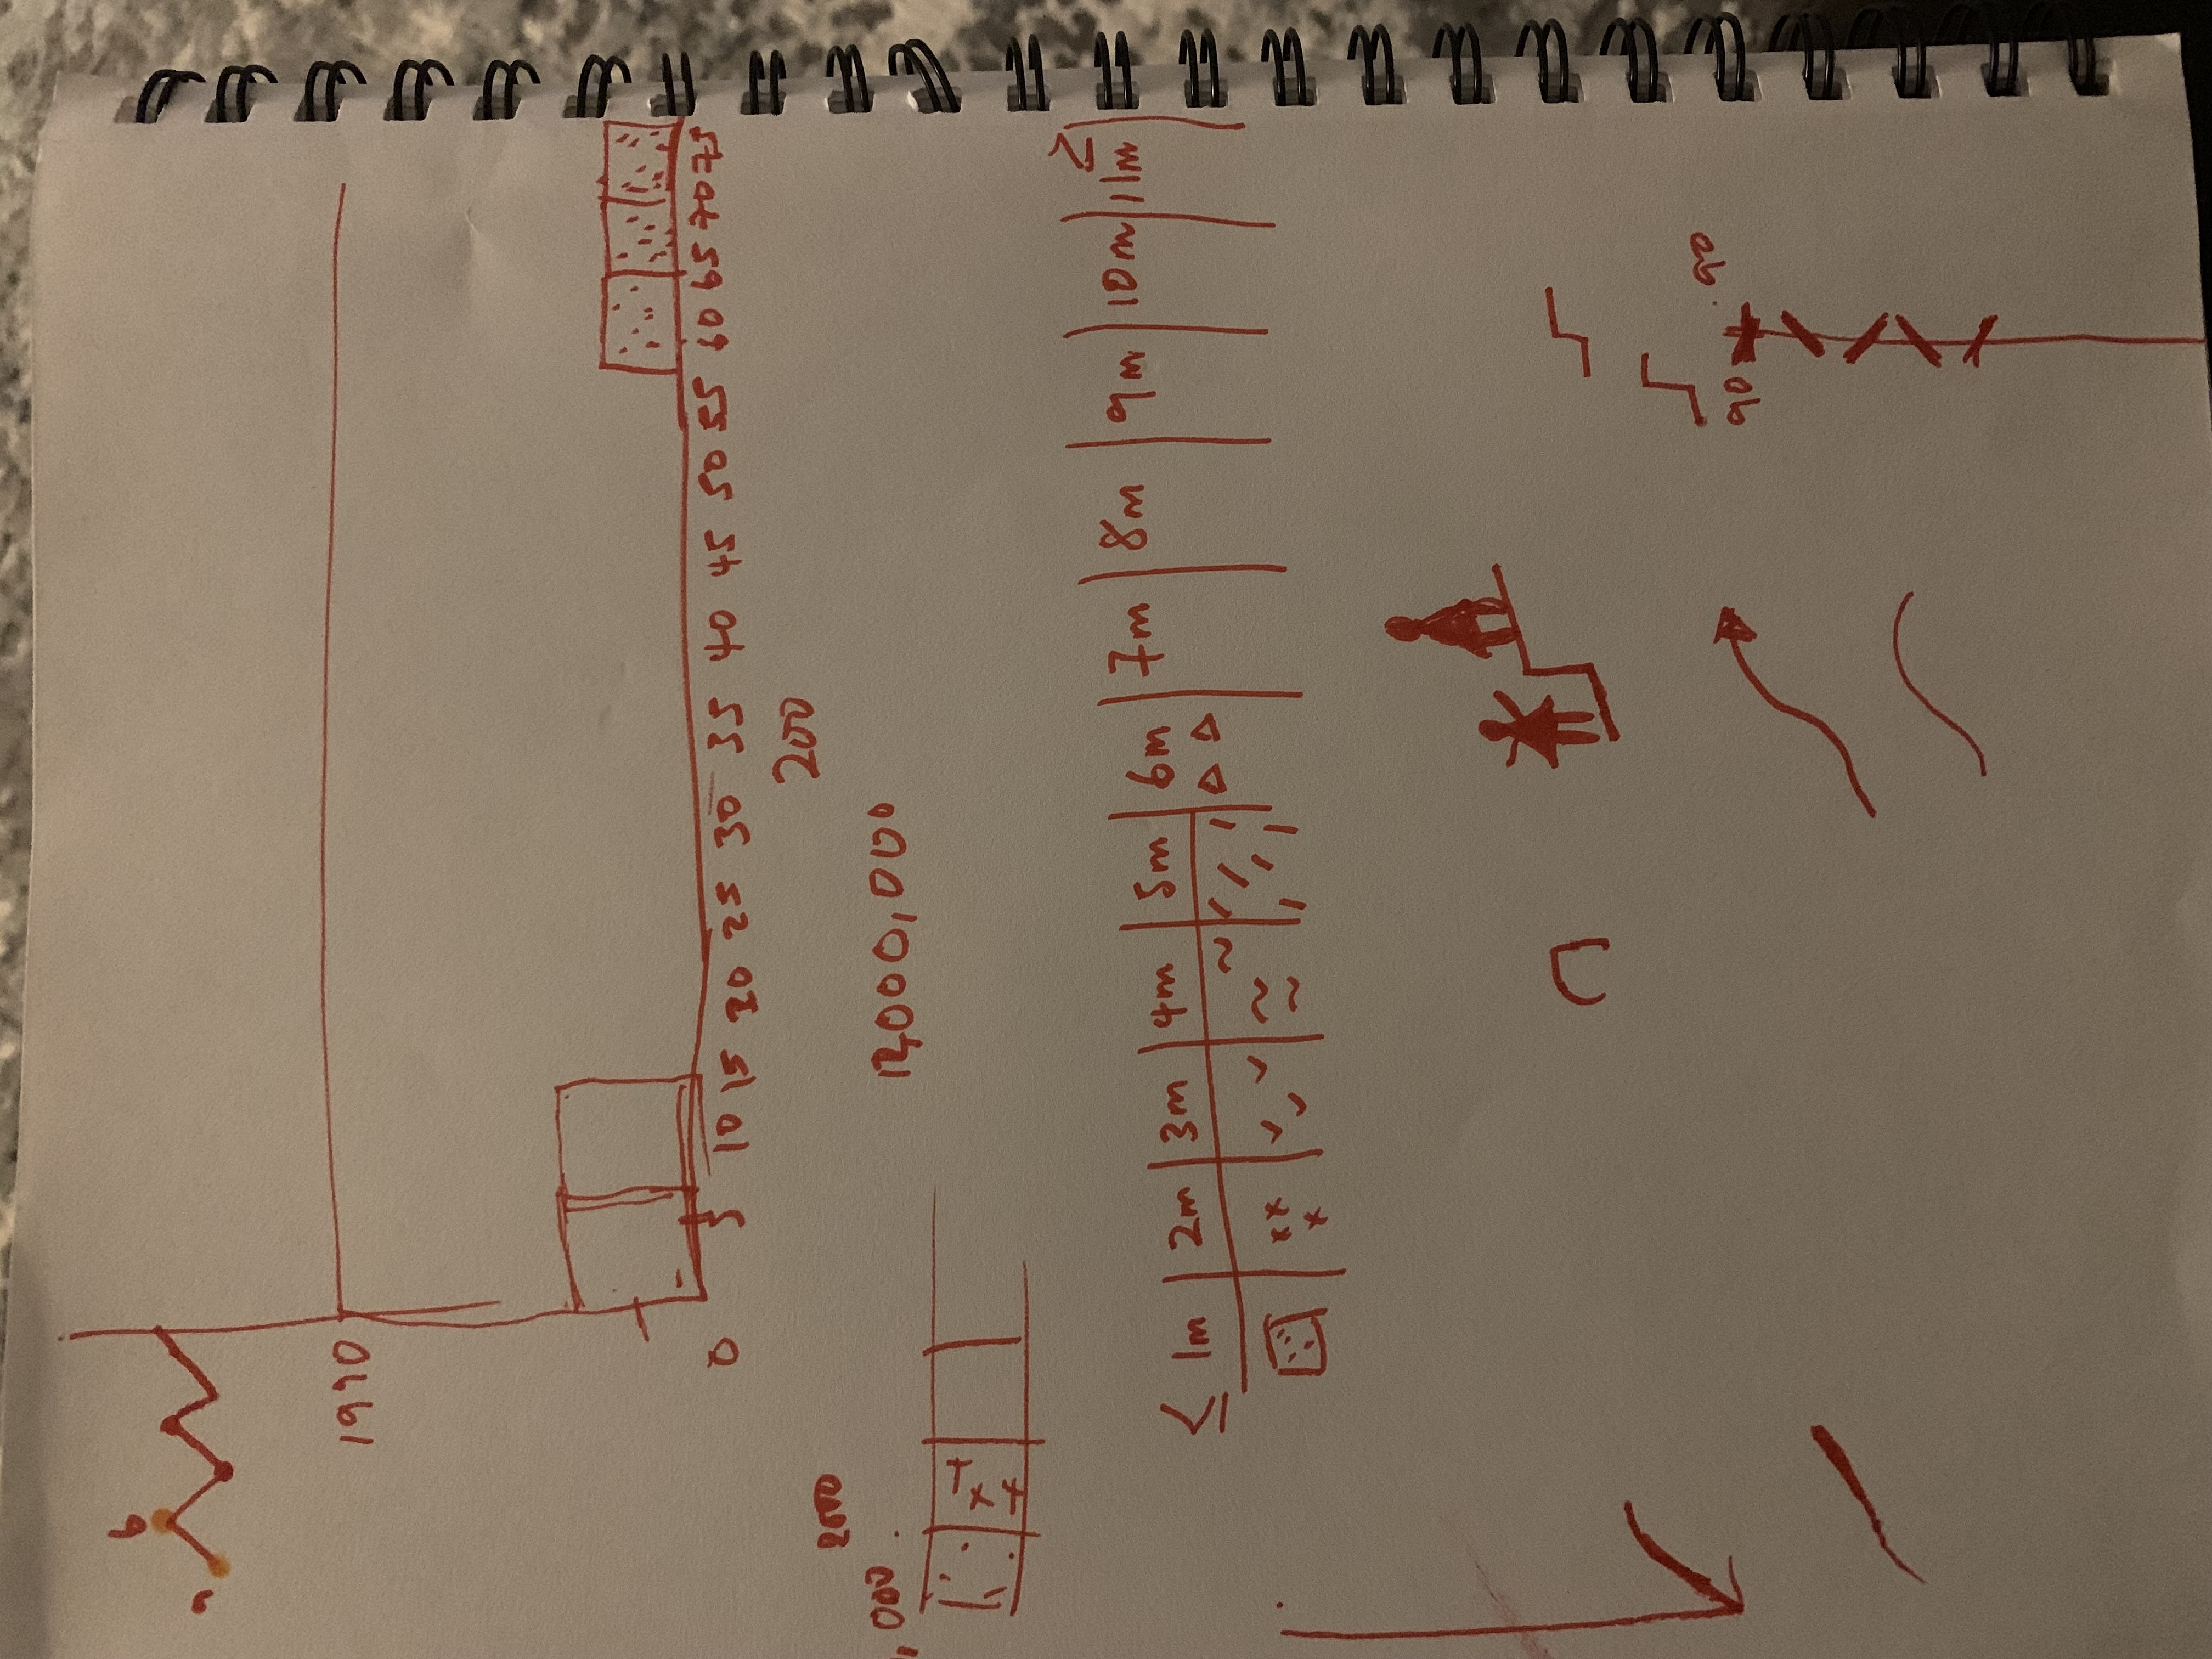 b
a
1990
0 5 10 15 20 25 30 35 40 45 50 55 60 65 70 75
200
2000
,000
12,000,000
≤ 1m 2m 3m 4m 5m 6m 7m 8m 9m 10m 11m ≥
90
90